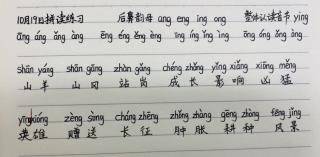 10月19日拼读练习 后鼻韵母 ang eng ing ong 整体认读音节 ying
āng áng ǎng àng ēng éng ěng èng īng íng ǐng ìng ōng óng ǒng òng
shān yáng shān gāng zhàn gǎng chéng zhǎng yǐng xiǎng xiōng měng
山羊 山冈 站岗 成长 影响 凶猛
yīngxióng zèng sòng cháng zhēng zhǒng zhàng gēng zhòng fēng jǐng
英雄 赠送 长征 肿胀 耕种 风景